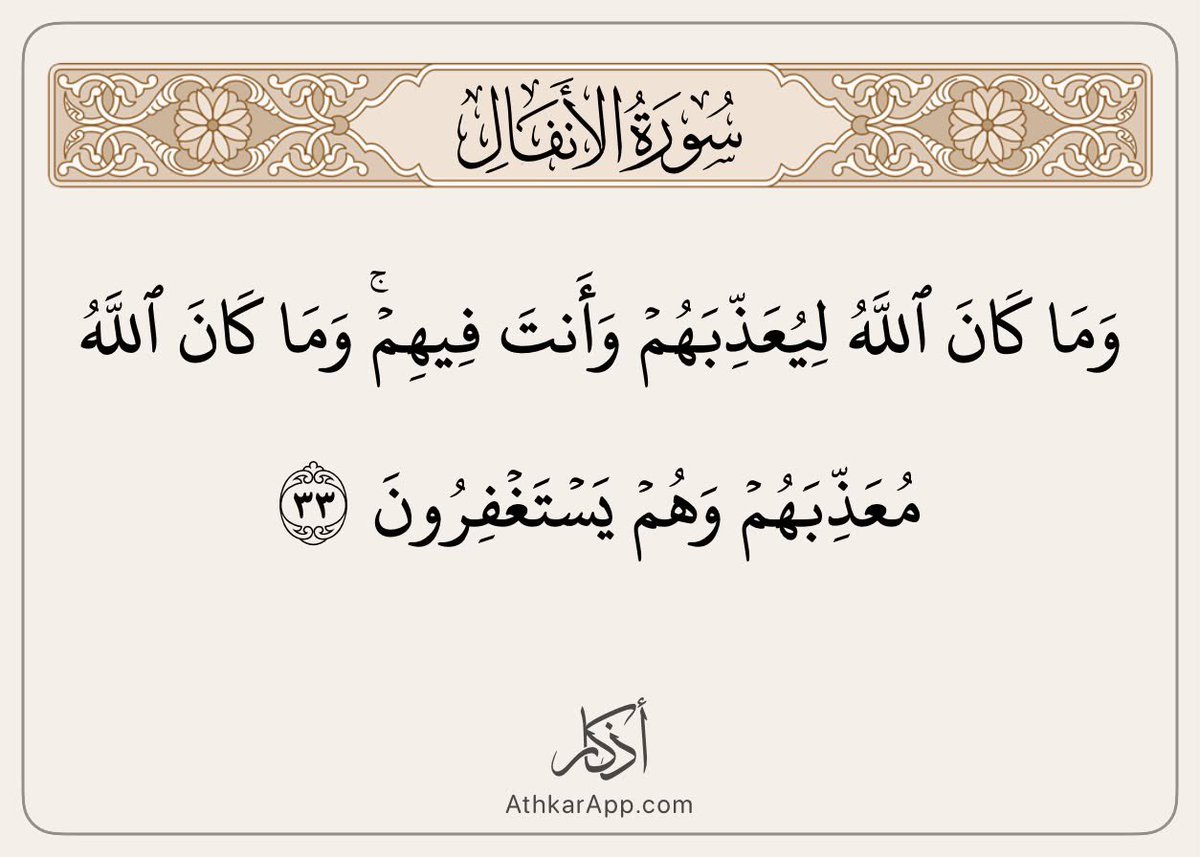 سُورَةُ الأَنفَالِ
وَمَا كَانَ ٱللَّهُ لِيُعَذِّبَهُمۡ وَأَنتَ فِيهِمۡۚ وَمَا كَانَ ٱللَّهُ
مُعَذِّبَهُمۡ وَهُمۡ يَسۡتَغۡفِرُونَ ٣٣
أذكار
AthkarApp.com